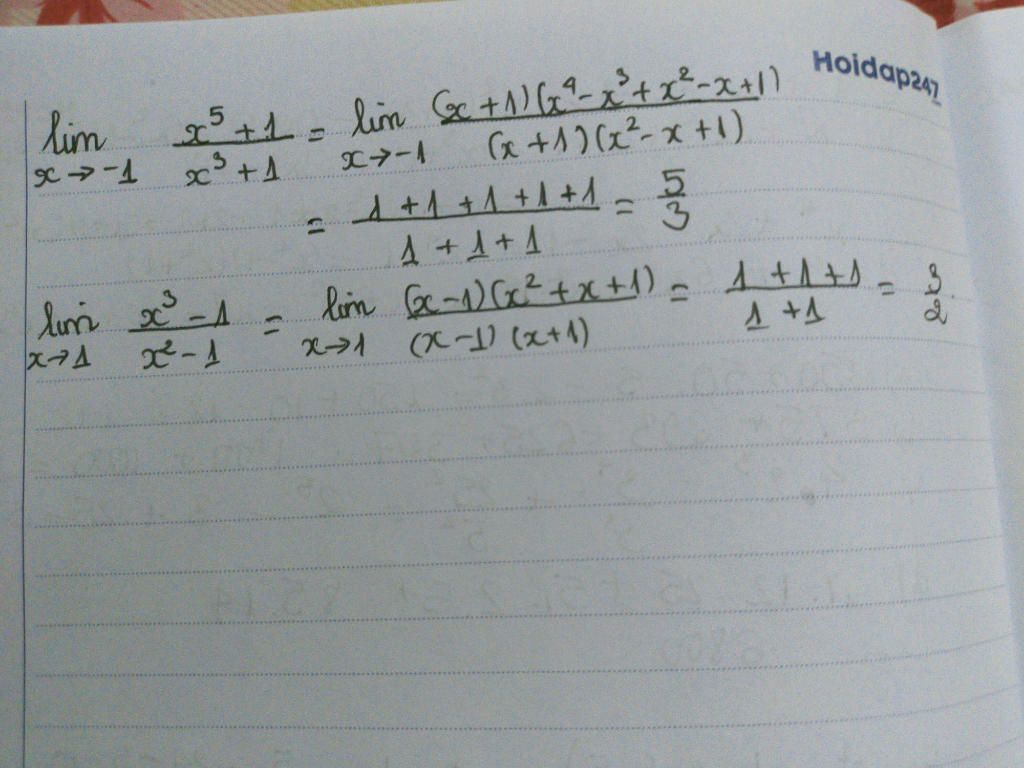 Hoidap247
lim x→-1 (x⁵+1)/(x³+1) = lim x→-1 ((x+1)(x⁴-x³+x²-x+1))/((x+1)(x²-x+1))
= (1+1+1+1+1)/(1+1+1) = 5/3
lim x→1 (x³-1)/(x²-1) = lim x→1 ((x-1)(x²+x+1))/((x-1)(x+1)) = (1+1+1)/(1+1) = 3/2